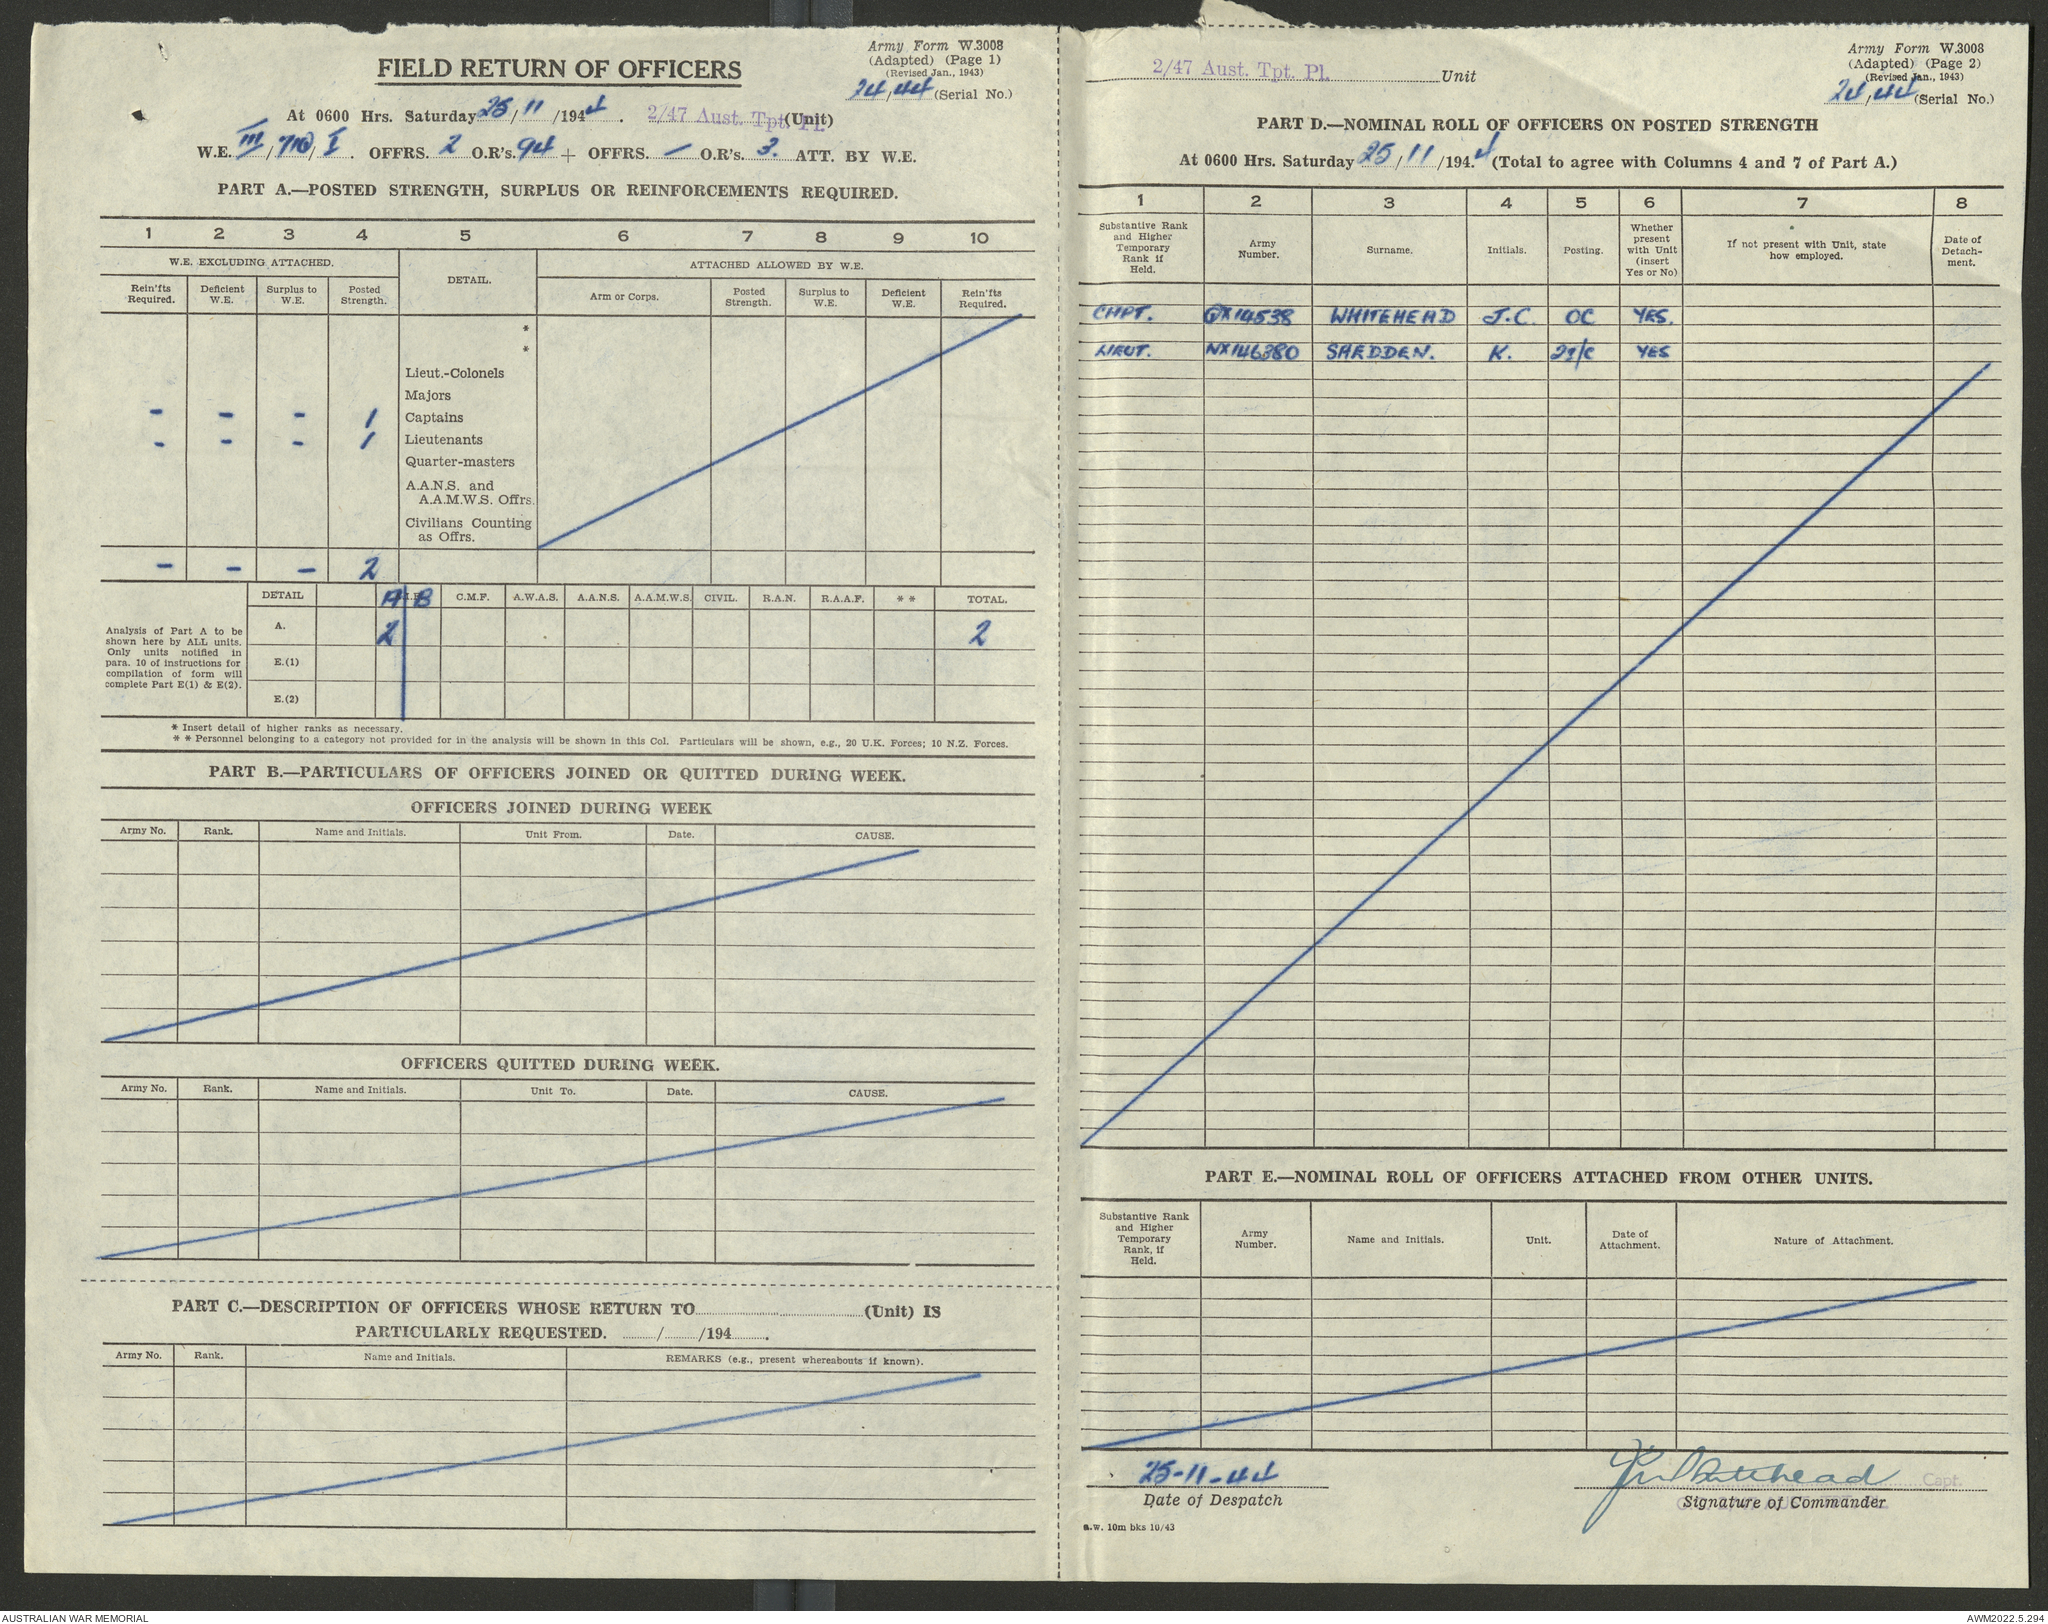 Army Form W.3008
(Adapted) (Page 1)
(Revised Jan., 1943)
24/44 (Serial No.)
FIELD RETURN OF OFFICERS
At 0600 Hrs. Saturday 25/11/1944. 2/47 Aust. Tpt. Pl. (Unit)
W.E. III/710/I. OFFRS. 2 O.R's. 94 + OFFRS. — O.R's. 3. ATT. BY W.E.
PART A.—POSTED STRENGTH, SURPLUS OR REINFORCEMENTS REQUIRED.
1 2 3 4 5 6 7 8 9 10
W.E. EXCLUDING ATTACHED. DETAIL. ATTACHED ALLOWED BY W.E.
Rein'fts Required. Deficient W.E. Surplus to W.E. Posted Strength. Arm or Corps. Posted Strength. Surplus to W.E. Deficient W.E. Rein'fts Required.
*
*
Lieut.-Colonels
Majors
- - - 1 Captains
- - - 1 Lieutenants
Quarter-masters
A.A.N.S. and
A.A.M.W.S. Offrs.
Civilians Counting
as Offrs.
- - - 2
DETAIL A B C.M.F. A.W.A.S. A.A.N.S. A.A.M.W.S. CIVIL. R.A.N. R.A.A.F. * * TOTAL.
Analysis of Part A to be
shown here by ALL units.
Only units notified in
para. 10 of instructions for
compilation of form will
complete Part E(1) & E(2).
A. 2 2
E.(1)
E.(2)
* Insert detail of higher ranks as necessary.
* * Personnel belonging to a category not provided for in the analysis will be shown in this Col. Particulars will be shown, e.g., 20 U.K. Forces; 10 N.Z. Forces.
PART B.—PARTICULARS OF OFFICERS JOINED OR QUITTED DURING WEEK.
OFFICERS JOINED DURING WEEK
Army No. Rank. Name and Initials. Unit From. Date. CAUSE.
OFFICERS QUITTED DURING WEEK.
Army No. Rank. Name and Initials. Unit To. Date. CAUSE.
PART C.—DESCRIPTION OF OFFICERS WHOSE RETURN TO (Unit) IS
PARTICULARLY REQUESTED. / /194 .
Army No. Rank. Name and Initials. REMARKS (e.g., present whereabouts if known).
2/47 Aust. Tpt. Pl. Unit
Army Form W.3008
(Adapted) (Page 2)
(Revised Jan., 1943)
24/44 (Serial No.)
PART D.—NOMINAL ROLL OF OFFICERS ON POSTED STRENGTH
At 0600 Hrs. Saturday 25/11/1944 (Total to agree with Columns 4 and 7 of Part A.)
1 2 3 4 5 6 7 8
Substantive Rank and Higher Temporary Rank if Held. Army Number. Surname. Initials. Posting. Whether present with Unit (insert Yes or No) If not present with Unit, state how employed. Date of Detachment.
CAPT. QX14538 WHITEHEAD J.C. OC YES.
LIEUT. NX146380 SHEDDEN. K. 2i/c YES
PART E.—NOMINAL ROLL OF OFFICERS ATTACHED FROM OTHER UNITS.
Substantive Rank and Higher Temporary Rank, if Held. Army Number. Name and Initials. Unit. Date of Attachment. Nature of Attachment.
25-11-44
Date of Despatch
JCWhitehead Capt.
Signature of Commander
a.w. 10m bks 10/43
AUSTRALIAN WAR MEMORIAL
AWM2022.5.294